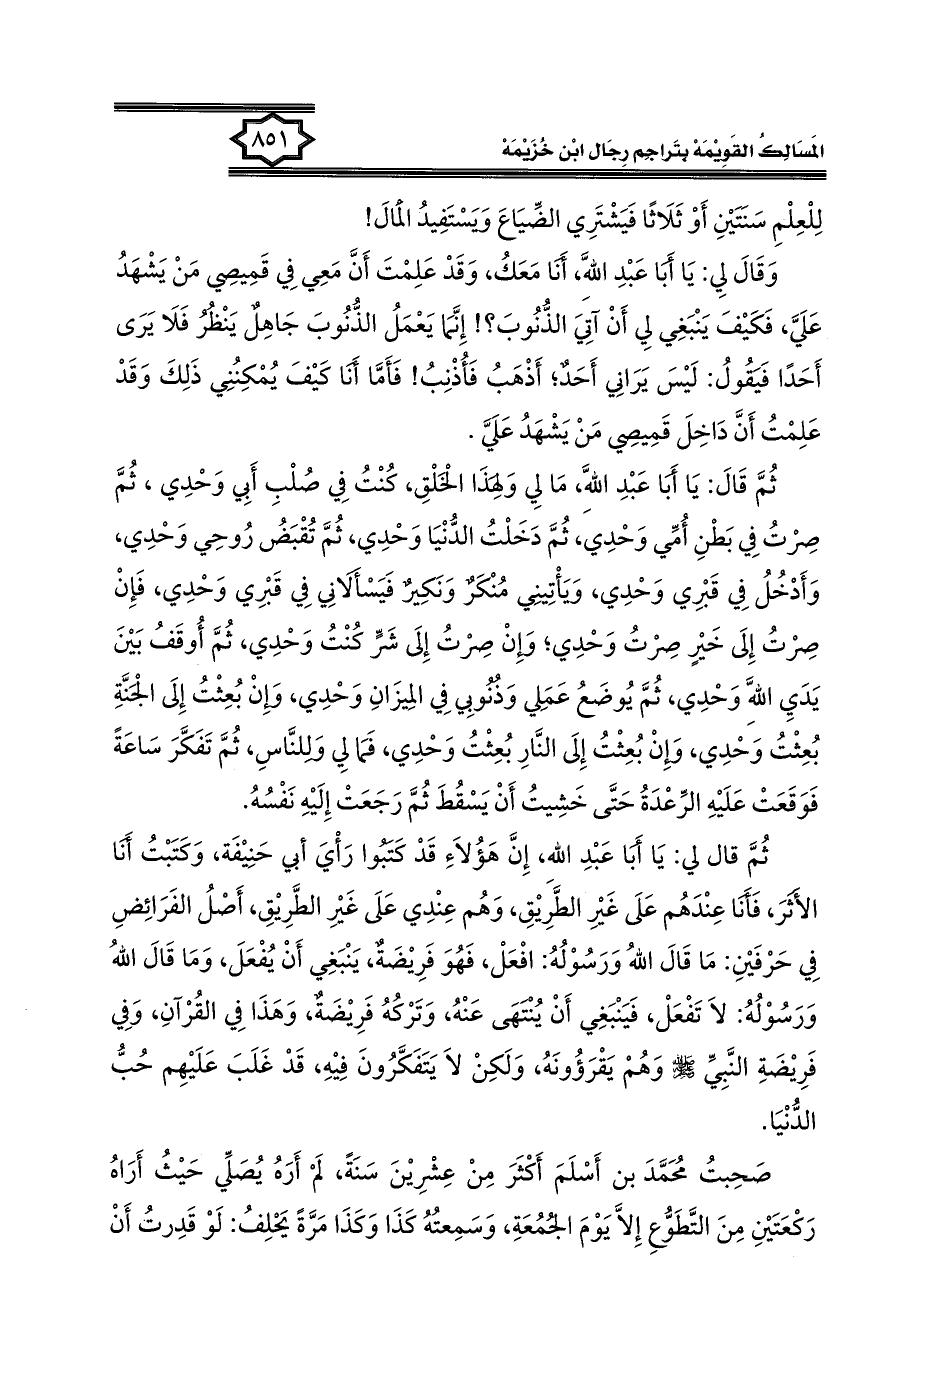 المَسَالِكُ القَوِيْمَةُ بِتَراجِمِ رِجَالِ ابْنِ خُزَيْمَةَ
٨٥١
لِلْعِلْمِ سَنَتَيْنِ أَوْ ثَلَاثًا فَيَشْتَرِي الضِّيَاعَ وَيَسْتَفِيدُ الْمَالَ!
وَقَالَ لِي: يَا أَبَا عَبْدِ اللهِ، أَنَا مَعَكُ، وَقَدْ عَلِمْتَ أَنَّ مَعِي فِي قَمِيصِي مَنْ يَشْهَدُ
عَلَيَّ، فَكَيْفَ يَنْبَغِي لِي أَنْ آتِيَ الذُّنُوبَ؟! إِنَّمَا يَعْمَلُ الذُّنُوبَ جَاهِلٌ يَنْظُرُ فَلَا يَرَى
أَحَدًا فَيَقُولُ: لَيْسَ يَرَانِي أَحَدٌ؛ أَذْهَبُ فَأُذْنِبُ! فَأَمَّا أَنَا كَيْفَ يُمْكِنُنِي ذَلِكَ وَقَدْ
عَلِمْتُ أَنَّ دَاخِلَ قَمِيصِي مَنْ يَشْهَدُ عَلَيَّ .
ثُمَّ قَالَ: يَا أَبَا عَبْدِ اللهِ، مَا لِي وَلِهَذَا الْخَلْقِ، كُنْتُ فِي صُلْبِ أَبِي وَحْدِي ، ثُمَّ
صِرْتُ فِي بَطْنِ أُمِّي وَحْدِي، ثُمَّ دَخَلْتُ الدُّنْيَا وَحْدِي، ثُمَّ تُقْبَضُ رُوحِي وَحْدِي،
وَأَدْخُلُ فِي قَبْرِي وَحْدِي، وَيَأْتِينِي مُنْكَرٌ وَنَكِيرٌ فَيَسْأَلَانِي فِي قَبْرِي وَحْدِي، فَإِنْ
صِرْتُ إِلَى خَيْرٍ صِرْتُ وَحْدِي؛ وَإِنْ صِرْتُ إِلَى شَرٍّ كُنْتُ وَحْدِي، ثُمَّ أُوقَفُ بَيْنَ
يَدَيِ اللهِ وَحْدِي، ثُمَّ يُوضَعُ عَمَلِي وَذُنُوبِي فِي الْمِيزَانِ وَحْدِي، وَإِنْ بُعِثْتُ إِلَى الْجَنَّةِ
بُعِثْتُ وَحْدِي، وَإِنْ بُعِثْتُ إِلَى النَّارِ بُعِثْتُ وَحْدِي، فَمَا لِي وَلِلنَّاسِ، ثُمَّ تَفَكَّرَ سَاعَةً
فَوَقَعَتْ عَلَيْهِ الرِّعْدَةُ حَتَّى خَشِيتُ أَنْ يَسْقُطَ ثُمَّ رَجَعَتْ إِلَيْهِ نَفْسُهُ.
ثُمَّ قال لي: يَا أَبَا عَبْدِ اللهِ، إِنَّ هَؤُلاَءِ قَدْ كَتَبُوا رَأْيَ أبي حَنِيْفَة، وَكَتَبْتُ أَنَا
الأَثَرَ، فَأَنَا عِنْدَهُم عَلَى غَيْرِ الطَّرِيْقِ، وَهُم عِنْدِي عَلَى غَيْرِ الطَّرِيْقِ، أَصْلُ الفَرَائِضِ
فِي حَرْفَيْنِ: مَا قَالَ اللهُ وَرَسُوْلُهُ: افْعَلْ، فَهُوَ فَرِيْضَةٌ، يَنْبَغِي أَنْ يُفْعَلَ، وَمَا قَالَ اللهُ
وَرَسُوْلُهُ: لاَ تَفْعَلْ، فَيَنْبَغِي أَنْ يُنْتَهَى عَنْهُ، وَتَرْكُهُ فَرِيْضَةٌ، وَهَذَا فِي القُرْآنِ، وَفِي
فَرِيْضَةِ النَّبِيِّ ﷺ وَهُمْ يَقْرَؤُونَهُ، وَلَكِنْ لاَ يَتَفَكَّرُونَ فِيْهِ، قَدْ غَلَبَ عَلَيْهِم حُبُّ
الدُّنْيَا.
صَحِبتُ مُحَمَّدَ بن أَسْلَمَ أَكْثَرَ مِنْ عِشْرِيْنَ سَنَةً، لَمْ أَرَهُ يُصَلِّي حَيْثُ أَرَاهُ
رَكْعَتَيْنِ مِنَ التَّطَوُّعِ إِلاَّ يَوْمَ الجُمُعَةِ، وَسَمِعتُهُ كَذَا وَكَذَا مَرَّةً يَحْلِفُ: لَوْ قَدِرتُ أَنْ